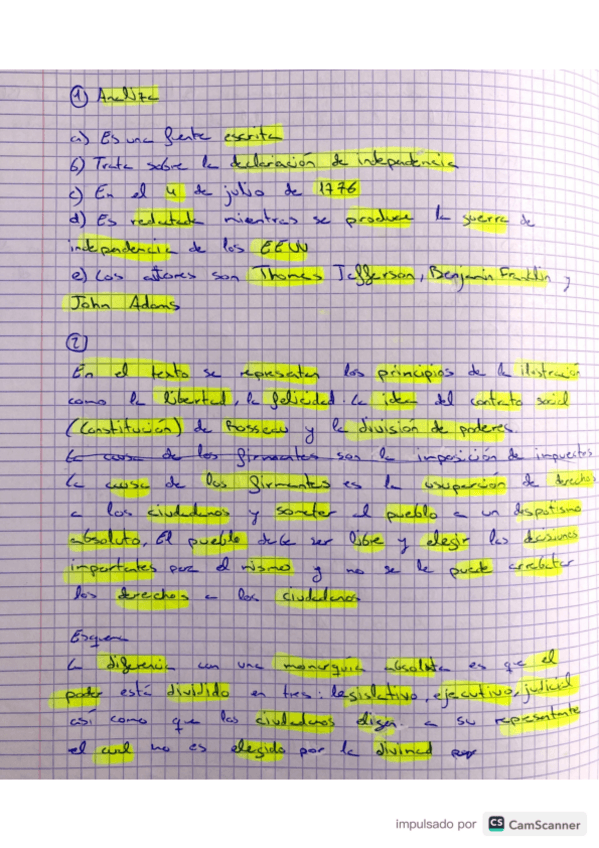 ① Analiza
a) Es una fuente escrita
b) Trata sobre la declaración de independencia
c) En el 4 de julio de 1776
d) Es redactada mientras se produce la guerra de
independencia de los EEUU
e) Los autores son Thomas Jefferson, Benjamin Franklin y
John Adams
②
En el texto se representan los principios de la ilustración
como la libertad, la felicidad. La idea del contrato social
(Constitución) de Rosseau y la división de poderes.
La causa de los firmantes son la imposición de impuestos
La causa de los firmantes es la usurpación de derechos
a los ciudadanos y someter al pueblo a un despotismo
absoluto. El pueblo debe ser libre y elegir las decisiones
importantes por el mismo y no se le puede arrebatar
los derechos a los ciudadanos
Esquema
La diferencia con una monarquía absoluta es que el
poder está dividido en tres: legislativo, ejecutivo, judicial
así como que los ciudadanos eligen a su representante
el cual no es elegido por la divined
impulsado por CS CamScanner